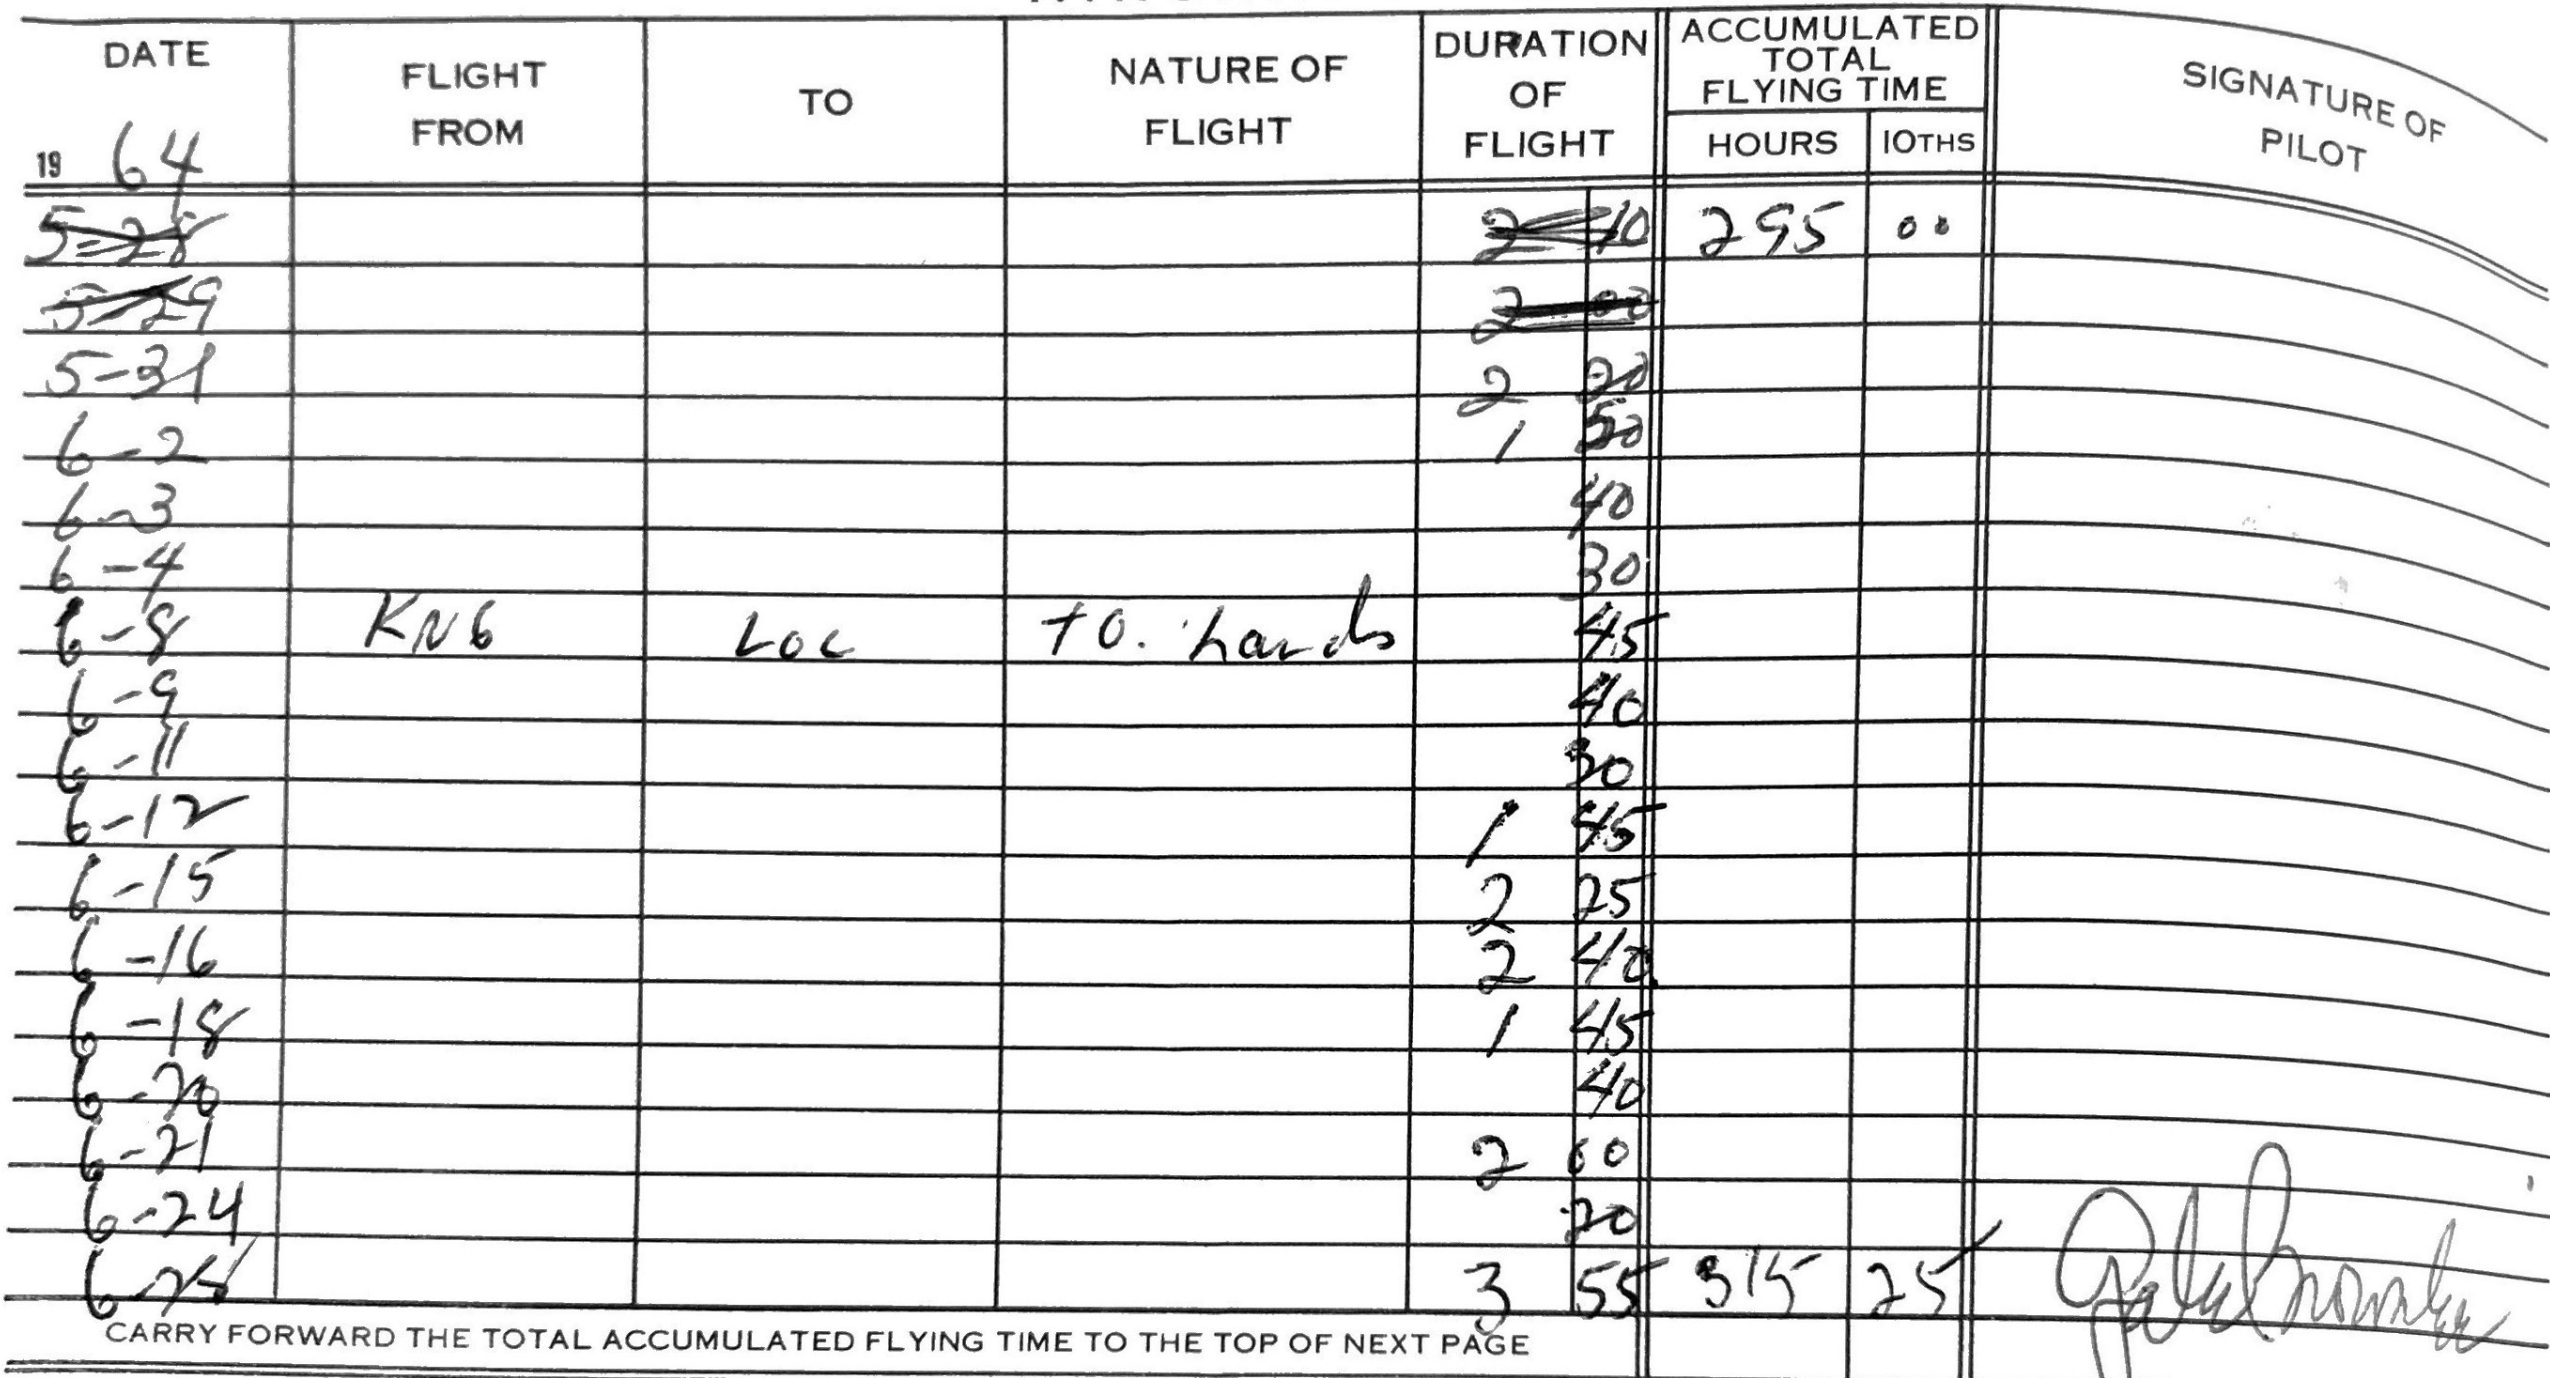 DATE FLIGHT FROM TO NATURE OF FLIGHT DURATION OF FLIGHT ACCUMULATED TOTAL FLYING TIME HOURS 10THS SIGNATURE OF PILOT
19 64
5-28 2 10 295 00
5-29 2 00
5-31 2 20
6-2 1 50
6-3 40
6-4 30
6-8 KN6 LOC TO. Lands 45
6-9 40
6-11 30
6-12 1 45
6-15 2 25
6-16 2 40
6-18 1 45
6-20 40
6-21 2 00
6-24 20
6-25 3 55 315 25
CARRY FORWARD THE TOTAL ACCUMULATED FLYING TIME TO THE TOP OF NEXT PAGE